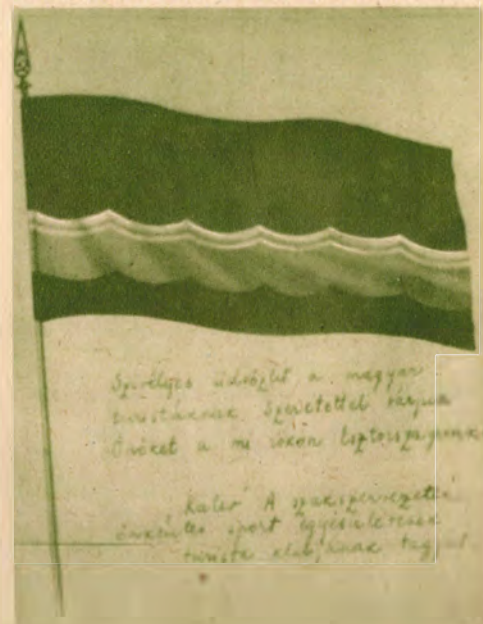 Szívélyes üdvözlet a magyar
turistáknak. Szeretettel várjuk
Önöket a mi rokon Észtországunk
"Kalev" A szakszervezetek
önkéntes sport egyesületének
turista klubjának tagjai